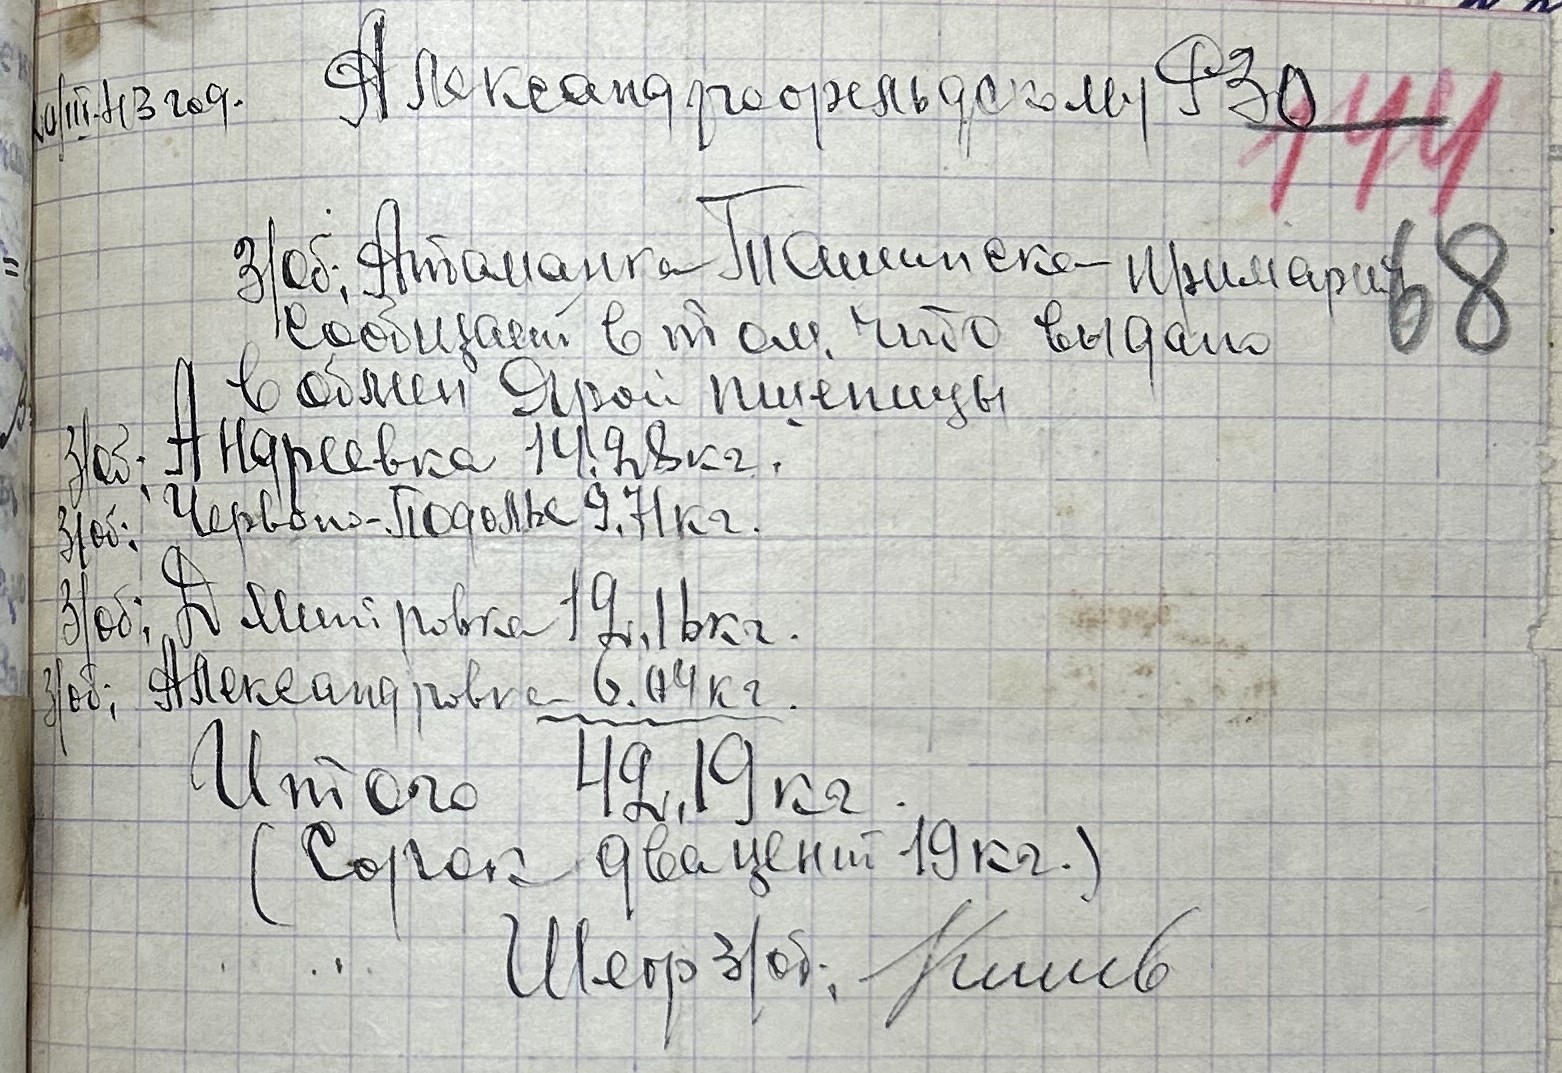 /III-43 год. Александрфельдскому РЗО
144
З/об; Атаманка Ташинска - Примарии
68
Сообщает в том, что выдано
в обмен Ярой пшеницы
З/об; Андреевка 14.28кг.
З/об; Червоно-Подолье 9.71кг.
З/об; Дмитровка 12.16кг.
З/об; Александровка 6.04кг.
Итого 42,19кг.
(Сорок два цент 19кг.)
Шеф З/об;